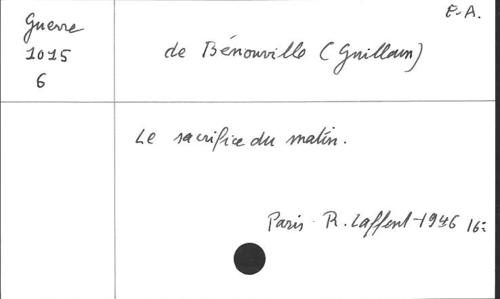 E-A.
Guerre
1015
6
de Bénouville (Guillain)
Le sacrifice du matin.
Paris - R. Laffent - 1946 16=